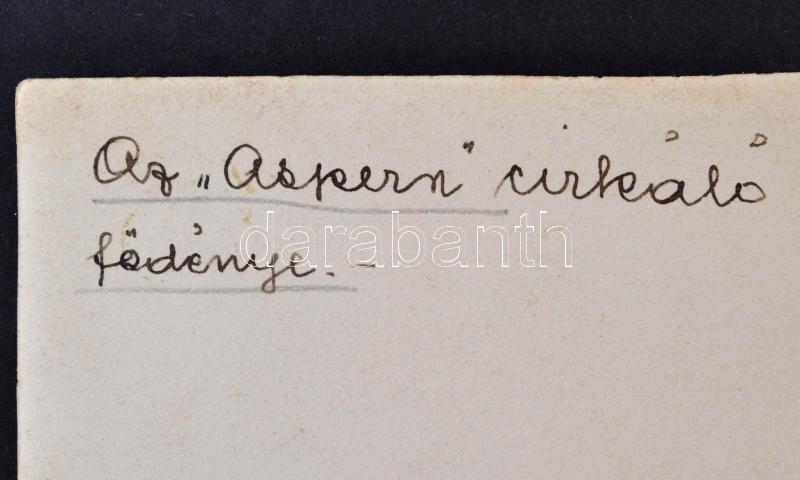 Az „Aspern" cirkáló
födénye. -
darabanth